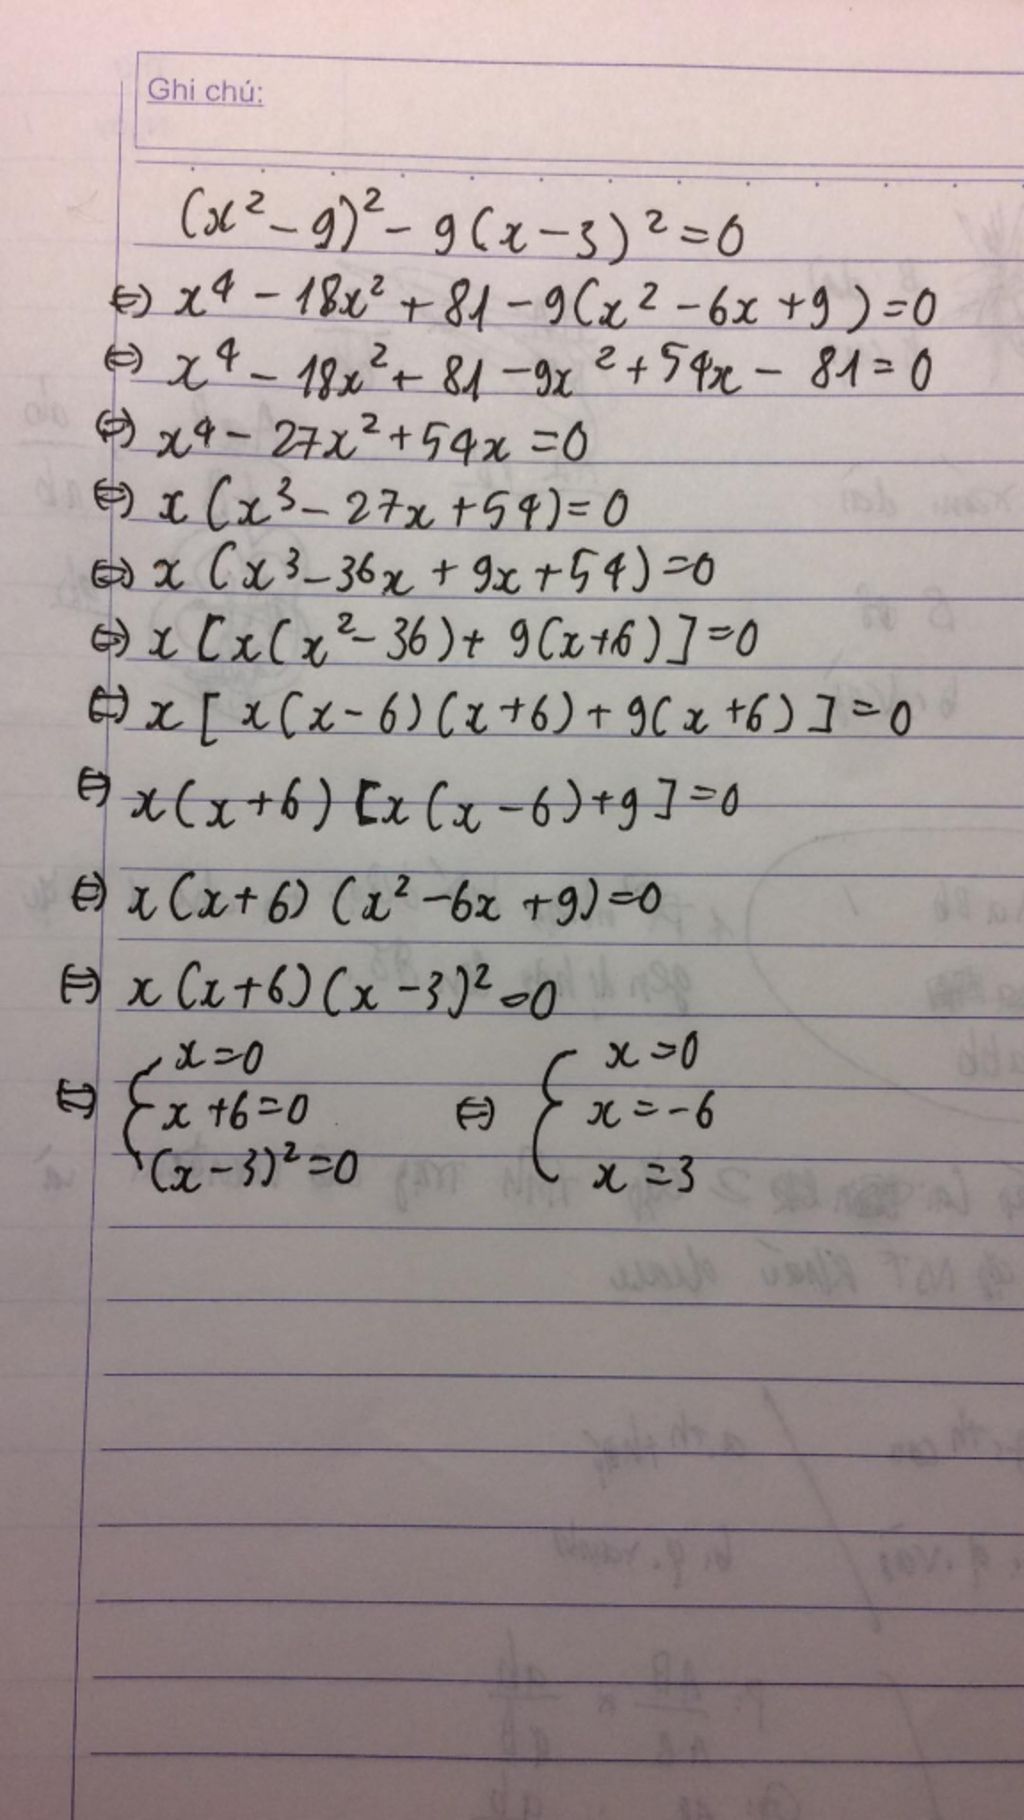 Ghi chú:
(x² - 9)² - 9(x - 3)² = 0
⇔ x⁴ - 18x² + 81 - 9(x² - 6x + 9) = 0
⇔ x⁴ - 18x² + 81 - 9x² + 54x - 81 = 0
⇔ x⁴ - 27x² + 54x = 0
⇔ x(x³ - 27x + 54) = 0
⇔ x(x³ - 36x + 9x + 54) = 0
⇔ x[x(x² - 36) + 9(x + 6)] = 0
⇔ x[x(x - 6)(x + 6) + 9(x + 6)] = 0
⇔ x(x + 6)[x(x - 6) + 9] = 0
⇔ x(x + 6)(x² - 6x + 9) = 0
⇔ x(x + 6)(x - 3)² = 0
⇔ { x = 0
x + 6 = 0
(x - 3)² = 0
⇔ { x = 0
x = -6
x = 3